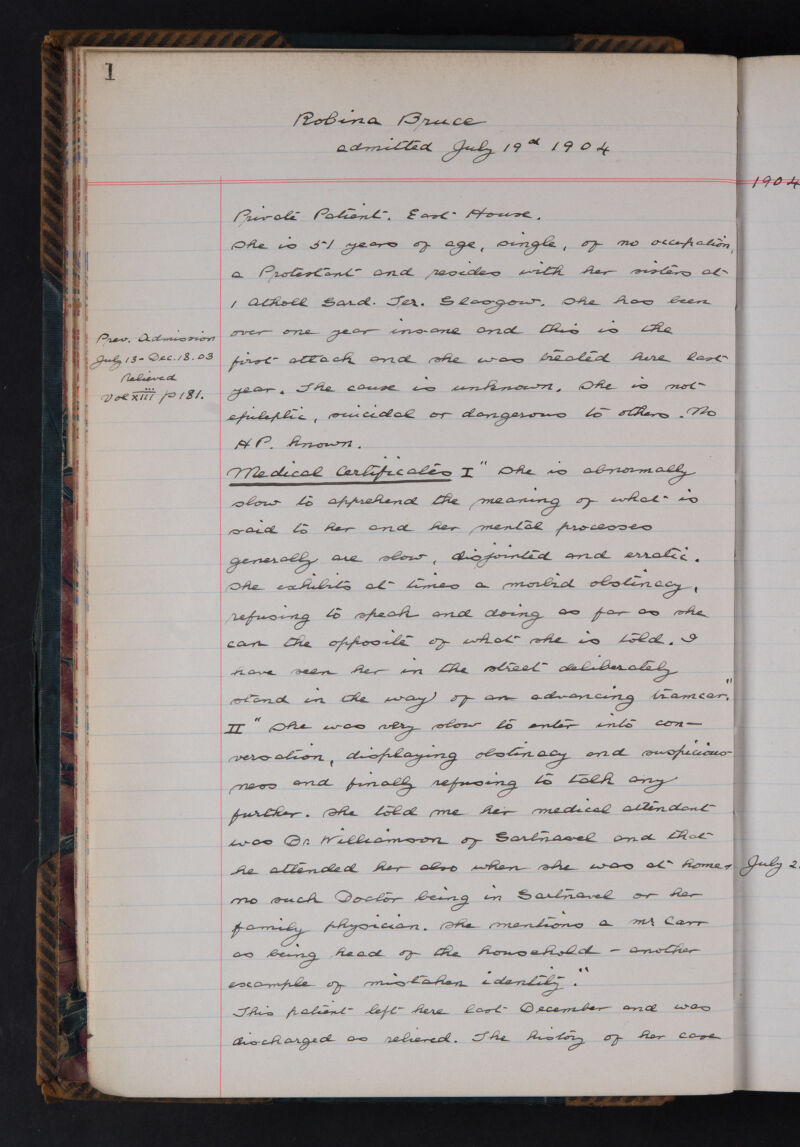 1
Robina Bruce
admitted July 19th 1904
1904
Private Patient. East House.
She is 51 years of age, single, of no occupation,
a Protestant and resides with her sisters at
1 Atholl Gard. Ter. Glasgow. She has been
over one year insane and this is the
first attack and she was treated here last
year. The cause is unknown. She is not
epileptic, suicidal or dangerous to others. No
H.P. known.
Prev. Admission
July 13 - Dec. 18. 03
Relieved
Vol XIII p 181.
Medical Certificates I "She is abnormally
slow to apprehend the meaning of what is
said to her and her mental processes
generally are slow, disjointed and erratic.
She exhibits at times a morbid obstinacy,
refusing to speak and doing as far as she
can the opposite of what she is told. I
have seen her in the street deliberately
stand in the way of an advancing tramcar."
II "She was very slow to enter into con-
versation, displaying obstinacy and suspicious-
ness and finally refusing to talk any
further. She told me her medical attendant
was Dr. Williamson of Gartnavel and that
he attended her also when she was at home,
no such Doctor being in Gartnavel or her
family physician. She mentions a Mr Carr
as being head of the household - another
example of mistaken identity."
This patient left here last December and was
discharged as relieved. The history of her case
July 2